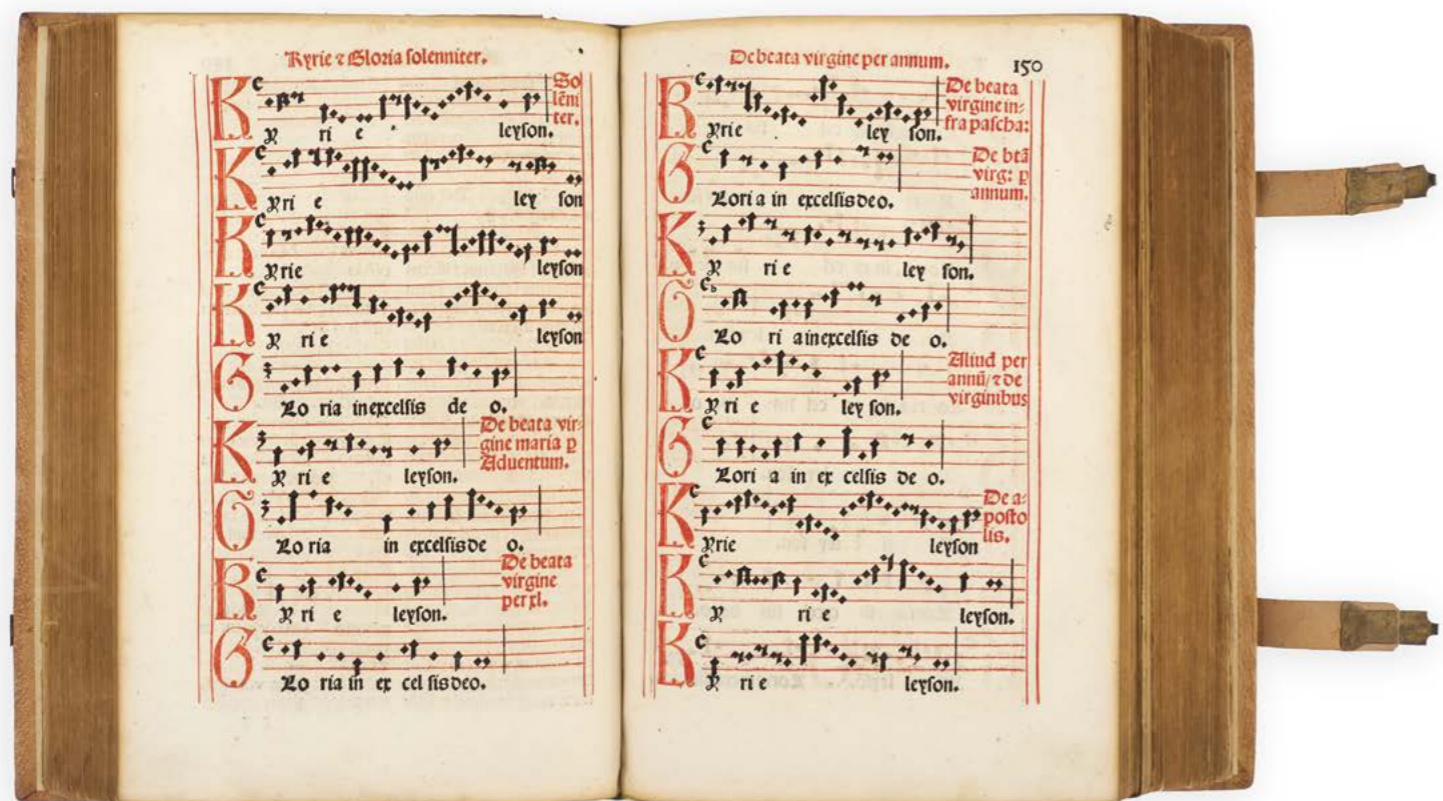 Kyrie ⁊ Gloria solenniter.
So
lēni
ter.
KY ri e leyson.
KYri e ley son
KYrie leyson
KY ri e leyson
GLo ria inexcelsis de o.
De beata vir-
gine maria ꝑ
Aduentum.
KY ri e leyson.
GLo ria in excelsis de o.
De beata
virgine
per xl.
KY ri e leyson.
GLo ria in ex cel sis deo.
De beata virgine per annum.
150
De beata
virgine in-
fra pascha:
KYrie ley son.
De btā
virg: ꝑ
annum.
GLori a in excelsis deo.
KY ri e ley son.
GLo ri a inexcelsis de o.
Aliud per
annū/ ⁊ de
virginibus
KY ri e ley son.
GLori a in ex celsis de o.
De a-
posto
lis.
KYrie leyson
KY ri e leyson.
KY ri e leyson.